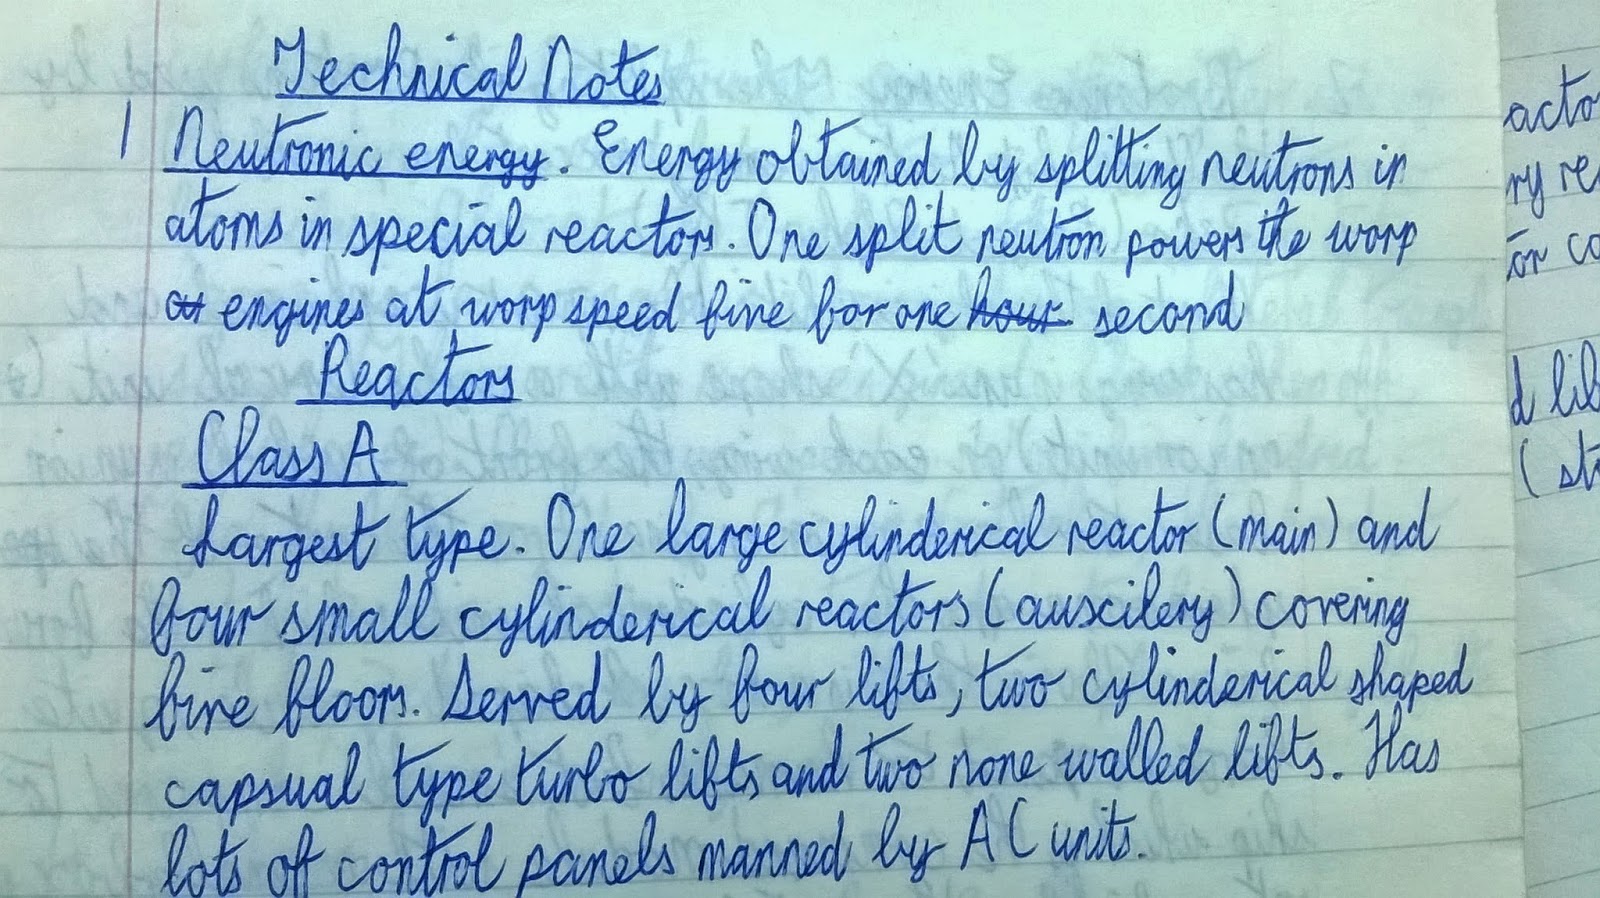 Technical Notes
1 Neutronic energy. Energy obtained by splitting neutrons in
atoms in special reactors. One split neutron powers the worp
at engines at worp speed five for one hour second
Reactors
Class A
Largest type. One large cylinderical reactor (main) and
four small cylinderical reactors (auscilery) covering
five floors. Served by four lifts, two cylinderical shaped
capsual type turbo lifts and two none walled lifts. Has
lots off control panels manned by A C units.
acto
ry re
or co
d lib
( st